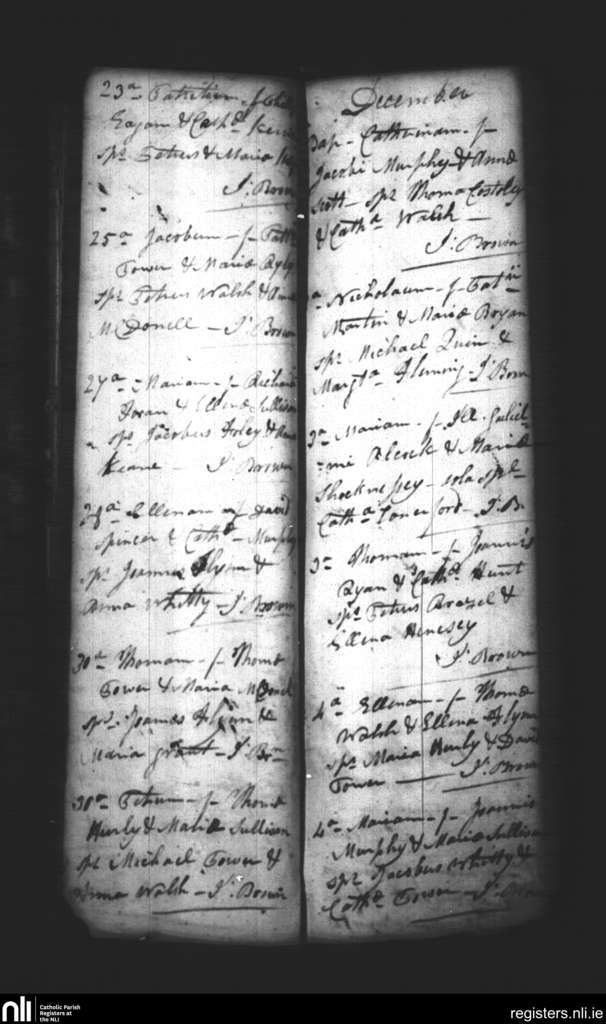 23a Patritium - f
Eagan & Cathe
spr Petrus & Maria
Js Brown
25a Jacobum - f - Patt
Power & Maria
spr Petrus Walsh & Anna
McDonell - Js Brown
27a - Mariam - f - Richard
Doran & Ellena Sullivan
spr Jacobus Foley &
Keane - Js Brown
Ellenam - f David
Spencer & Cathe Murphy
spr Joannes Flynn &
Anna Whitty - Js Brown
30a Thomam - f - Thoma
Power & Maria McDonel
spr Joannes Flynn &
Maria Grant - Js Brn
30a Petrum - f - Thoma
Hurly & Maria Sullivan
spr Michael Power &
Anna Walsh - Js Brown
December
Bap - Catherinam - f -
Jacobi Murphy & Anna
Scott - spr Thoma Costoley
& Catha Walsh -
Js Brown
a Nicholaum - f - Patii
Martin & Maria Bryan
spr Michael Quin &
Margta Fleming - Js Brn
3a Mariam - f - Ill. Guliel
=mi & Maria
Shocknessey - sola spx
Catha - Js B.
3a Thomam - f - Joannis
Ryan & Catha Hunt
spr Petrus Brazel &
Ellena Henesey
Js Brown
4a Ellenam - f - Thoma
Walsh & Ellena Flynn
spr Maria Hurly & David
Power - Js Brown
4a Mariam - f - Joannis
Murphy & Maria Sullivan
spr Jacobus Whitty &
Cathe Power - Js Brown
nli
Catholic Parish
Registers at
the NLI
registers.nli.ie